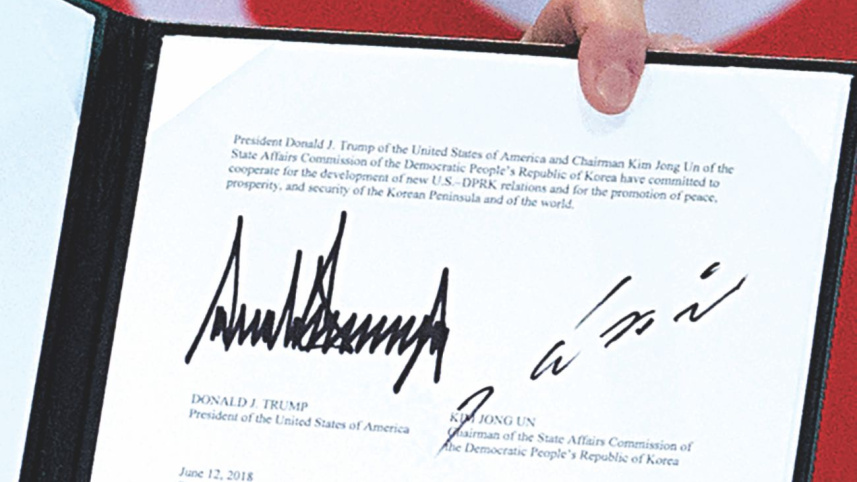 President Donald J. Trump of the United States of America and Chairman Kim Jong Un of the
State Affairs Commission of the Democratic People's Republic of Korea have committed to
cooperate for the development of new U.S.–DPRK relations and for the promotion of peace,
prosperity, and security of the Korean Peninsula and of the world.
DONALD J. TRUMP
President of the United States of America
KIM JONG UN
Chairman of the State Affairs Commission of
the Democratic People's Republic of Korea
June 12, 2018